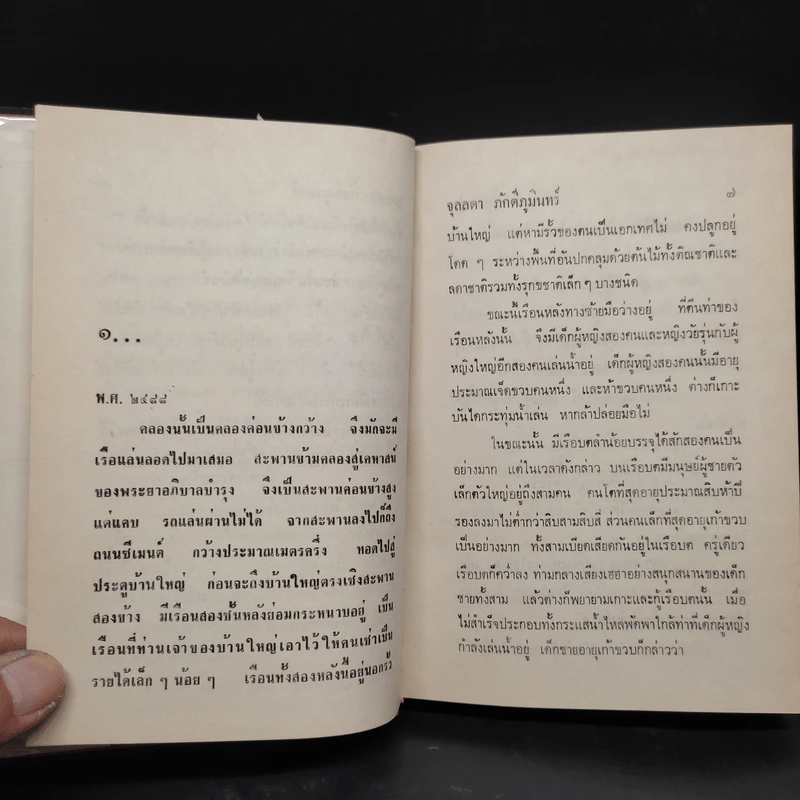 ๑...
พ.ศ. ๒๔๘๘
คลองนั้นเป็นคลองค่อนข้างกว้าง จึงมักจะมี
เรือแล่นลอดไปมาเสมอ สะพานข้ามคลองสู่เคหาสน์
ของพระยาอภิบาลบำรุง จึงเป็นสะพานค่อนข้างสูง
แต่แคบ รถแล่นผ่านไม่ได้ จากสะพานลงไปก็ถึง
ถนนซีเมนต์ กว้างประมาณเมตรครึ่ง ทอดไปสู่
ประตูบ้านใหญ่ ก่อนจะถึงบ้านใหญ่ตรงเชิงสะพาน
สองข้าง มีเรือนสองชั้นหลังย่อมกระหนาบอยู่ เป็น
เรือนที่ท่านเจ้าของบ้านใหญ่เอาไว้ให้คนเช่าเป็น
รายได้เล็ก ๆ น้อย ๆ เรือนทั้งสองหลังนี้อยู่นอกรั้ว
จุลลดา ภักดีภูมินทร์ ๗
บ้านใหญ่ แต่หามีรั้วของตนเป็นเอกเทศไม่ คงปลูกอยู่
โดด ๆ ระหว่างพื้นที่อันปกคลุมด้วยต้นไม้ทั้งติณชาติและ
ลดาชาติรวมทั้งรุกขชาติเล็ก ๆ บางชนิด
ขณะนี้เรือนหลังทางซ้ายมือว่างอยู่ ที่ตีนท่าของ
เรือนหลังนั้น จึงมีเด็กผู้หญิงสองคนและหญิงวัยรุ่นกับผู้
หญิงใหญ่อีกสองคนเล่นน้ำอยู่ เด็กผู้หญิงสองคนนั้นมีอายุ
ประมาณเจ็ดขวบคนหนึ่ง และห้าขวบคนหนึ่ง ต่างก็เกาะ
บันไดกระทุ่มน้ำเล่น หากล้าปล่อยมือไม่
ในขณะนั้น มีเรือบดลำน้อยบรรจุได้สักสองคนเป็น
อย่างมาก แต่ในเวลาดังกล่าว บนเรือบดมีมนุษย์ผู้ชายตัว
เล็กตัวใหญ่อยู่ถึงสามคน คนโตที่สุดอายุประมาณสิบห้าปี
รองลงมาไม่ต่ำกว่าสิบสามสิบสี่ ส่วนคนเล็กที่สุดอายุเก้าขวบ
เป็นอย่างมาก ทั้งสามเบียดเสียดกันอยู่ในเรือบด ครู่เดียว
เรือบดก็คว่ำลง ท่ามกลางเสียงเฮฮาอย่างสนุกสนานของเด็ก
ชายทั้งสาม แล้วต่างก็พยายามเกาะและกู้เรือบดนั้น เมื่อ
ไม่สำเร็จประกอบทั้งกระแสน้ำไหลพัดพาใกล้ท่าที่เด็กผู้หญิง
กำลังเล่นน้ำอยู่ เด็กชายอายุเก้าขวบก็กล่าวว่า